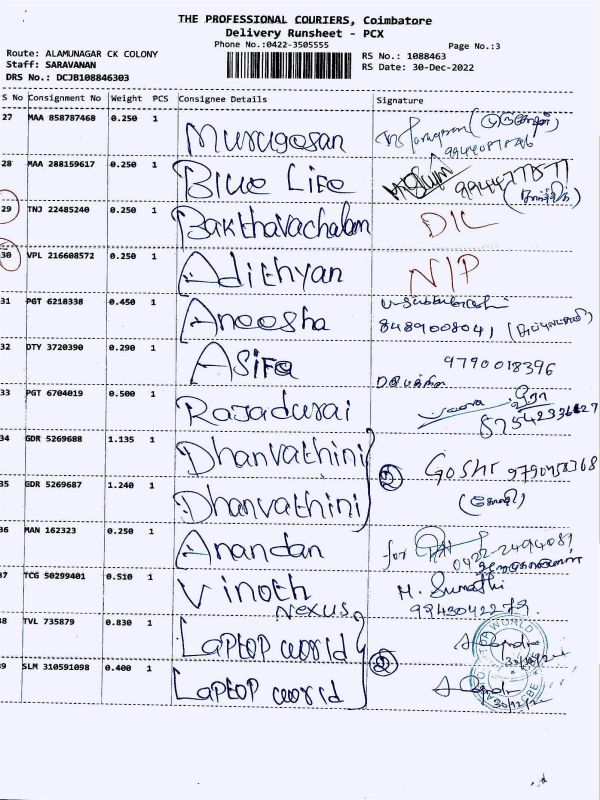 THE PROFESSIONAL COURIERS, Coimbatore
Delivery Runsheet - PCX
Phone No.:0422-3505555
Page No.:3
Route: ALAMUNAGAR CK COLONY
Staff: SARAVANAN
DRS No.: DCJB108846303
RS No.: 1088463
RS Date: 30-Dec-2022
S No Consignment No Weight PCS Consignee Details Signature
27 MAA 858787468 0.250 1 Murugesan
28 MAA 288159617 0.250 1 Blue Life
29 TNJ 22485240 0.250 1 Bakthavachalam D/L
30 VPL 216608572 0.250 1 Adithyan N/P
31 PGT 6210338 0.450 1 Aneesha
8489008041
32 DTY 3720390 0.290 1 Asifa 9790018396
33 PGT 6704019 0.500 1 Rajadurai
34 GDR 5269688 1.135 1 Dhanvathini
2
35 GDR 5269687 1.240 1 Dhanvathini
36 MAN 162323 0.250 1 Anandan for
0422-2494081
37 TCG 50299401 0.510 1 Vinoth M. Sumathi
Nexus 9943042279.
38 TVL 735879 0.830 1 Laptop world
30/12/22
2
39 SLM 310591098 0.400 1 Laptop world
30/12/22